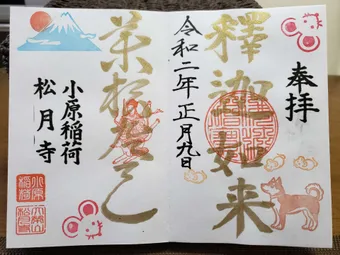 奉拝
釋迦如来
令和二年 正月九日
荼枳尼天
小原稲荷
松月寺